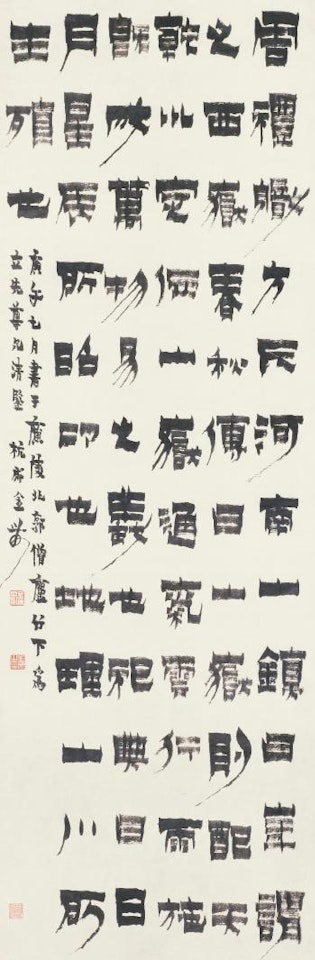 周禮職方氏河南山鎮曰崋謂
之西嶽春秋傳曰山嶽則配天
乾川定位山嶽通氣雲行雨施
既成萬物易之義也祀典曰日
月星辰所昭卬也地理山川所
生殖也
庚午七月書于廣陵北郭僧廬竹下為
尊兄清鑒 杭郡金農